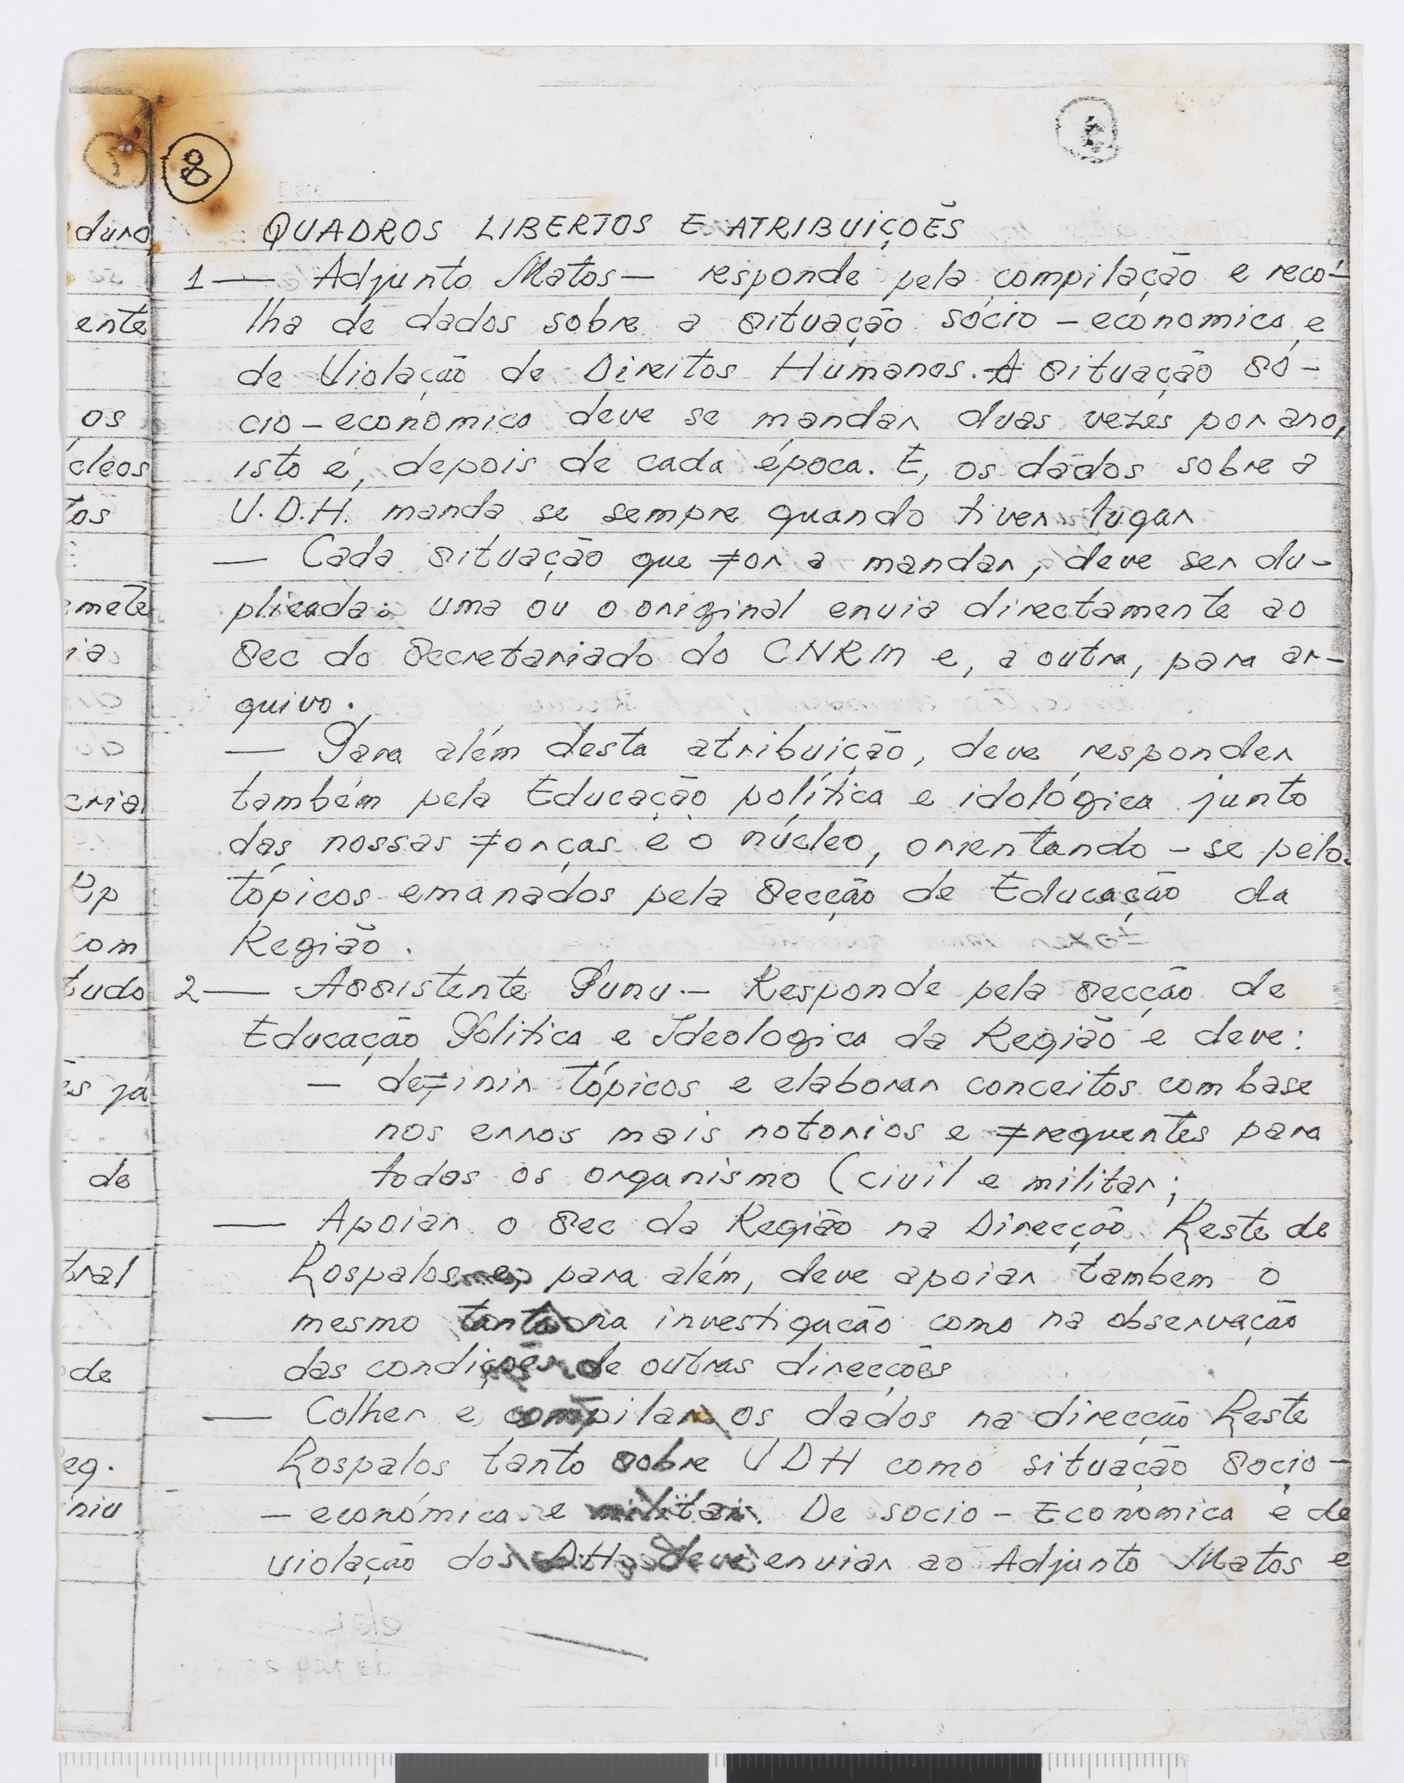 8
QUADROS LIBERTOS E ATRIBUIÇOẼS
1 — Adjunto Matos — responde pela compilação e reco-
lha de dados sobre a situação sócio - economica e
de Violação de Direitos Humanos. A situação só-
cio - economica deve se mandar duas vezes por ano,
isto é, depois de cada época. E, os dados sobre a
V.D.H. manda se sempre quando tiver lugar
— Cada situação que for a mandar, deve ser du-
plicada: uma ou o original envia directamente ao
Sec do Secretariado do CNRM e, a outra, para ar-
quivo.
— Para além desta atribuição, deve responder
também pela Educação política e idológica junto
das nossas forças e o núcleo, orientando - se pelo
tópicos emanados pela Secção de Educação da
Região.
2 — Assistente Punu — Responde pela Secção de
Educação Politica e Ideologica da Região e deve:
— definir tópicos e elaborar conceitos com base
nos erros mais notorios e frequentes para
todos os organismo (civil e militar;
— Apoiar o Sec da Região na Direcção Leste de
Lospalos e, para além, deve apoiar tambem o
mesmo tanto na investigação como na observação
das condições de outras direcções
— Colher e compilar os dados na direcção Leste
Lospalos tanto sobre VDH como situação Socio -
- económica e militar. De socio - Economica e de
violação dos DH, deve enviar ao Adjunto Matos e
duro
ente
os
cleos
tos
mete
ia
cria
Rp
com
tudo
es já
de
tral
de
eg.
niu